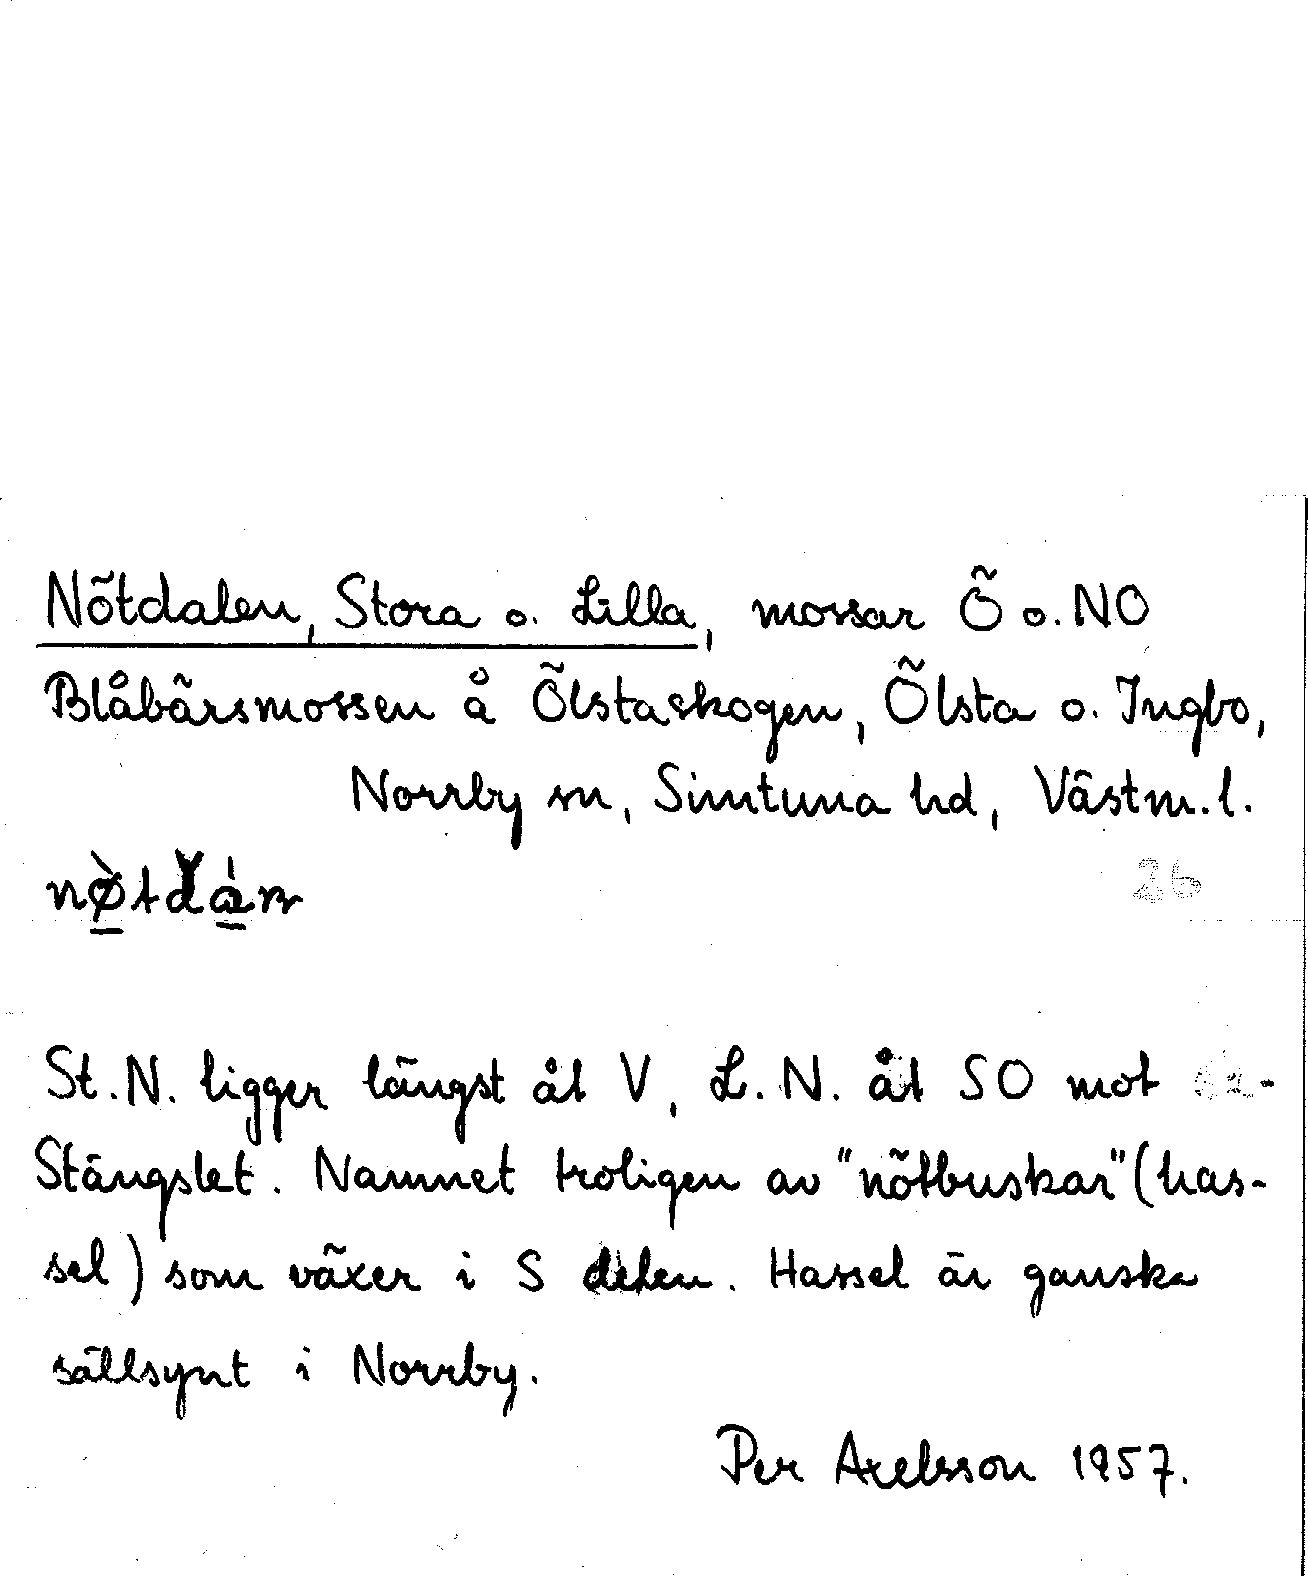 Nötdalen, Stora o. Lilla, mossar Ö o. NO
Blåbärsmossen å Ölstaskogen, Ölsta o. Ingbo,
Norrby sn, Simtuna hd, Västm. l.
26
St. N. ligger längst åt V, L. N. åt SO mot
Stängslet. Namnet troligen av "nötbuskar" (has-
sel) som växer i S delen. Hassel är ganska
sällsynt i Norrby.
Per Axelsson 1957.